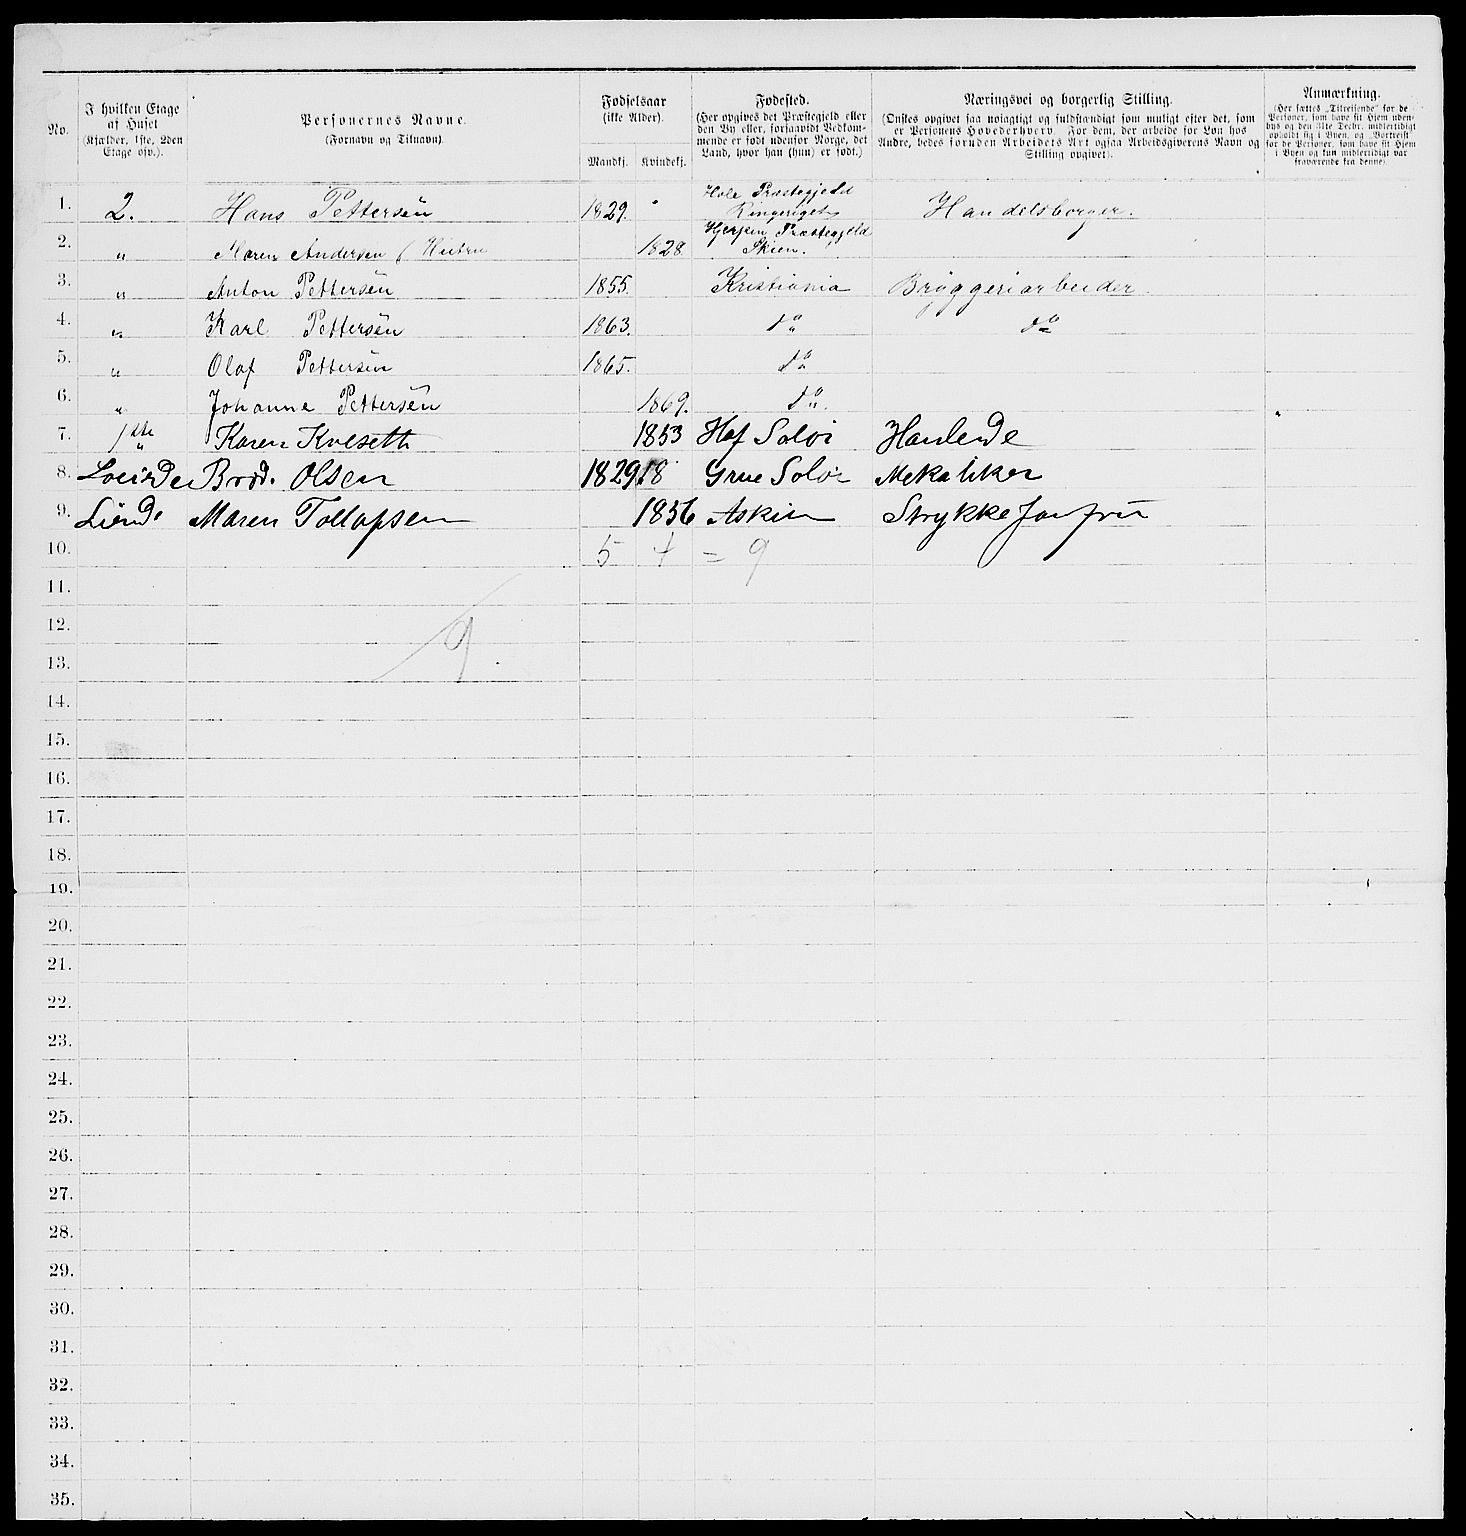 No.
I hvilken Etage af Huset (Kjælder, 1ste, 2den Etage osv.).
Personernes Navne. (Fornavn og Tilnavn)
Fødselsaar (ikke Alder).
Mandkj. Kvindekj.
Fødested. (Her opgives det Præstegjeld eller den By eller, forsaavidt Vedkommende er født udenfor Norge, det Land, hvor han (hun) er født.)
Næringsvei og borgerlig Stilling. (Ønskes opgivet saa nøiagtigt og fuldstændigt som muligt efter det, som er Personens Hovederhverv. For dem, der arbeide for Løn hos Andre, bedes foruden Arbeidets Art ogsaa Arbeidsgiverens Navn og Stilling opgivet).
Anmærkning. (Her sættes „Tilreisende" for de Personer, som have sit Hjem udenbys og den 31te Decbr. midlertidigt opholdt sig i Byen, og „Bortreist" for de Personer, som have sit Hjem i Byen og kun midlertidigt var fraværende fra denne).
1. 2. Hans Pettersen 1829. " Hole Præstegjeld Ringeriget Handelsborger.
2. " Maren Andersen ( Hustru 1828 Hjerpen Præstegjeld Skien.
3. " Anton Pettersen 1855. Kristiania Bryggeriarbeider.
4. " Karl Pettersen 1863. do do
5. " Olaf Pettersen 1865. do
6. " Johanne Pettersen 1869. do.
7. 1ste " Karen Kvesetth 1853 Hof Soløi Hanlende
8. Br¨d. Olsen 1829 18 Grue Soløi Mekaniker
9. Maren Tollofsen 1856 Askim Strykkejomfru
10. 5 4 = 9
11.
12. 9
13.
14.
15.
16.
17.
18.
19.
20.
21.
22.
23.
24.
25.
26.
27.
28.
29.
30.
31.
32.
33.
34.
35.